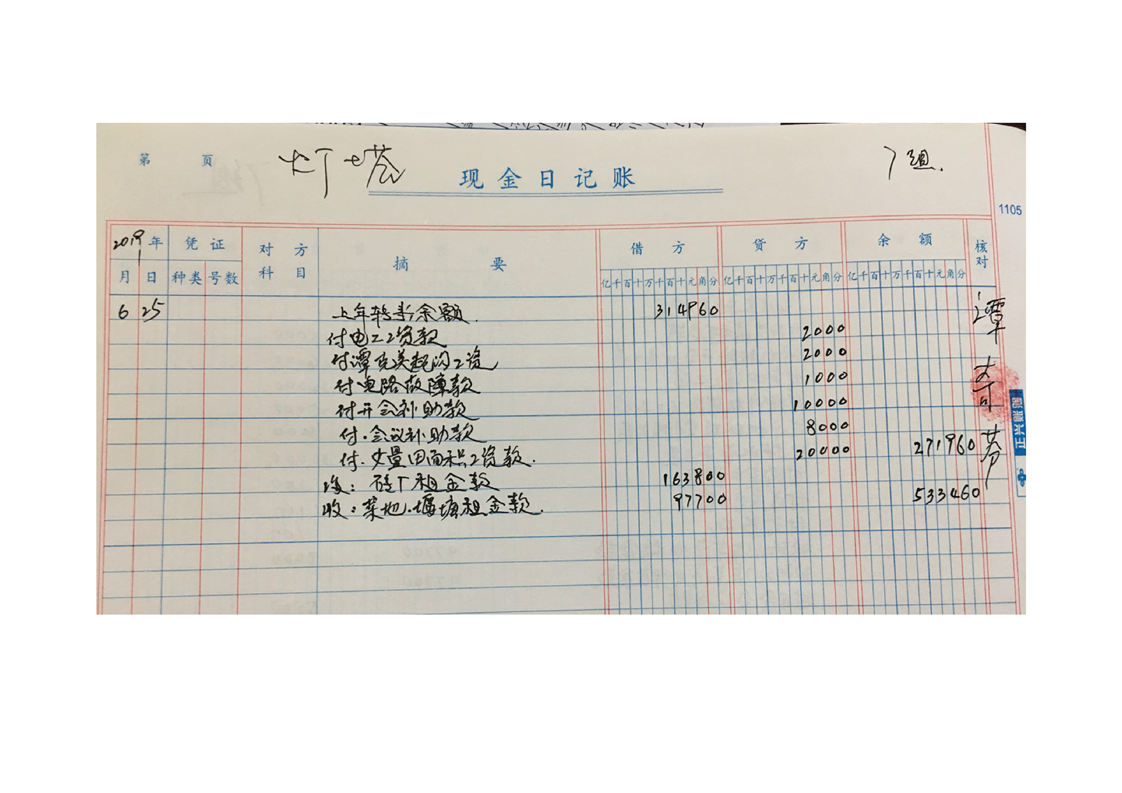 第 页 灯塔 现金日记账 7组.
1105
2019年 凭证 对方科目 摘要 借方 贷方 余额 核对
月 日 种类 号数 亿千百十万千百十元角分 亿千百十万千百十元角分 亿千百十万千百十元角分
6 25 上年转来余额. 314960
付电工工资款 2000
付谭克美起沟工资 2000
付电路故障款 1000
付开会补助款 10000
付.会议补助款 8000
付.丈量田面积工资款. 20000 271960
收:砖厂租金款 163800
收:菜地.堰塘租金款. 97700 533460